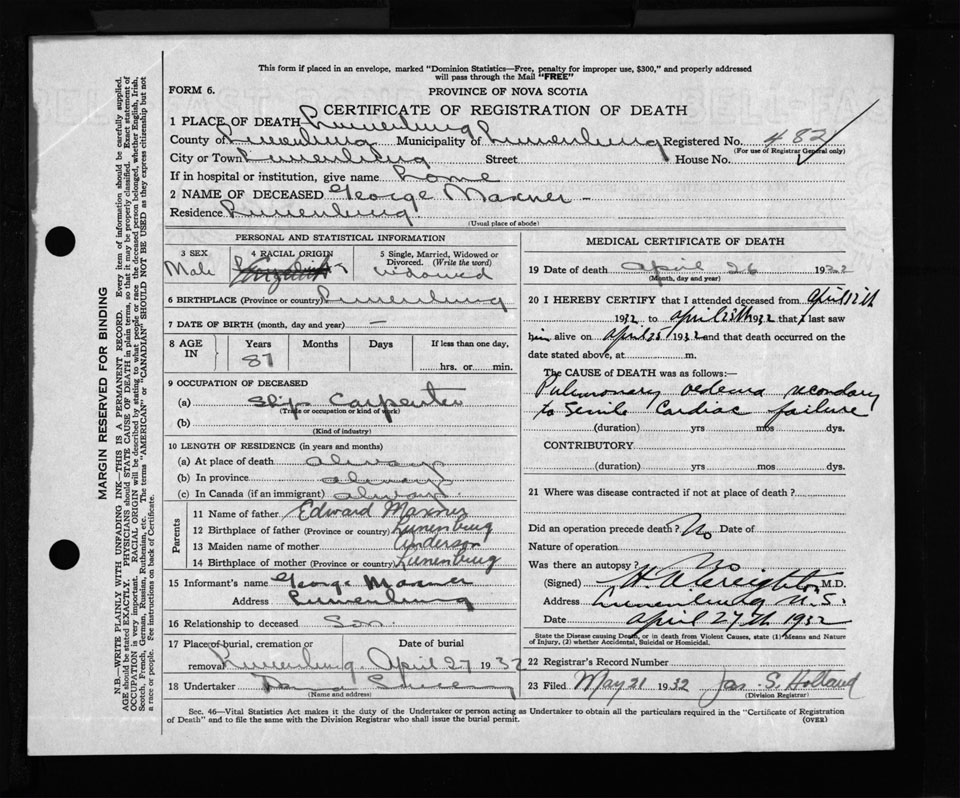 This form if placed in an envelope, marked "Dominion Statistics—Free, penalty for improper use, $300," and properly addressed
will pass through the Mail "FREE"
FORM 6.
PROVINCE OF NOVA SCOTIA
CERTIFICATE OF REGISTRATION OF DEATH
1 PLACE OF DEATH Lunenburg
County of Lunenburg Municipality of Lunenburg Registered No. 482
(For use of Registrar General only)
City or Town Lunenburg Street House No.
If in hospital or institution, give name Home
2 NAME OF DECEASED George Maxner
Residence Lunenburg
(Usual place of abode)
PERSONAL AND STATISTICAL INFORMATION
3 SEX
Male
4 RACIAL ORIGIN
English
5 Single, Married, Widowed or
Divorced. (Write the word)
widowed
6 BIRTHPLACE (Province or country) Lunenburg
7 DATE OF BIRTH (month, day and year) —
8 AGE
IN
Years
87
Months
Days
If less than one day,
hrs. or min.
9 OCCUPATION OF DECEASED
(a) Ship Carpenter
(Trade or occupation or kind of work)
(b)
(Kind of industry)
10 LENGTH OF RESIDENCE (in years and months)
(a) At place of death always
(b) In province always
(c) In Canada (if an immigrant) always
Parents
11 Name of father Edward Maxner
12 Birthplace of father (Province or country) Lunenburg
13 Maiden name of mother Anderson
14 Birthplace of mother (Province or country) Lunenburg
15 Informant's name George Maxner
Address Lunenburg
16 Relationship to deceased Son
17 Place of burial, cremation or Date of burial
removal Lunenburg. April 27 1932
18 Undertaker
(Name and address)
MEDICAL CERTIFICATE OF DEATH
19 Date of death april 26 1932
(Month, day and year)
20 I HEREBY CERTIFY that I attended deceased from April 12th
1932 to April 25th 1932 that I last saw
him alive on April 25 1932 and that death occurred on the
date stated above, at m.
The CAUSE of DEATH was as follows:
Pulmonary oedema secondary
to Senile Cardiac failure
(duration) yrs mos dys.
CONTRIBUTORY
(duration) yrs mos dys.
21 Where was disease contracted if not at place of death?
Did an operation precede death? No Date of
Nature of operation
Was there an autopsy? No
(Signed) H. A. Creighton M.D.
Address Lunenburg N.S.
Date April 27th 1932
State the Disease causing Death, or in death from Violent Causes, state (1) Means and Nature
of Injury, (2) whether Accidental, Suicidal or Homicidal.
22 Registrar's Record Number
23 Filed May 21 1932 Jas. S. Holland
(Division Registrar)
Sec. 46—Vital Statistics Act makes it the duty of the Undertaker or person acting as Undertaker to obtain all the particulars required in the "Certificate of Registration
of Death" and to file the same with the Division Registrar who shall issue the burial permit.
(OVER)
MARGIN RESERVED FOR BINDING
N.B.—WRITE PLAINLY WITH UNFADING INK—THIS IS A PERMANENT RECORD. Every item of information should be carefully supplied.
AGE should be stated EXACTLY. PHYSICIANS should STATE CAUSE OF DEATH in plain terms, so that it may be properly classified. Exact statement of
OCCUPATION is very important. RACIAL ORIGIN will be described by stating to what people or race the deceased person belonged, whether English, Irish,
Scotch, French, German, Russian, Ruthenian, etc. The terms "AMERICAN" or "CANADIAN" SHOULD NOT BE USED as they express citizenship but not
a race or people. See instructions on back of Certificate.